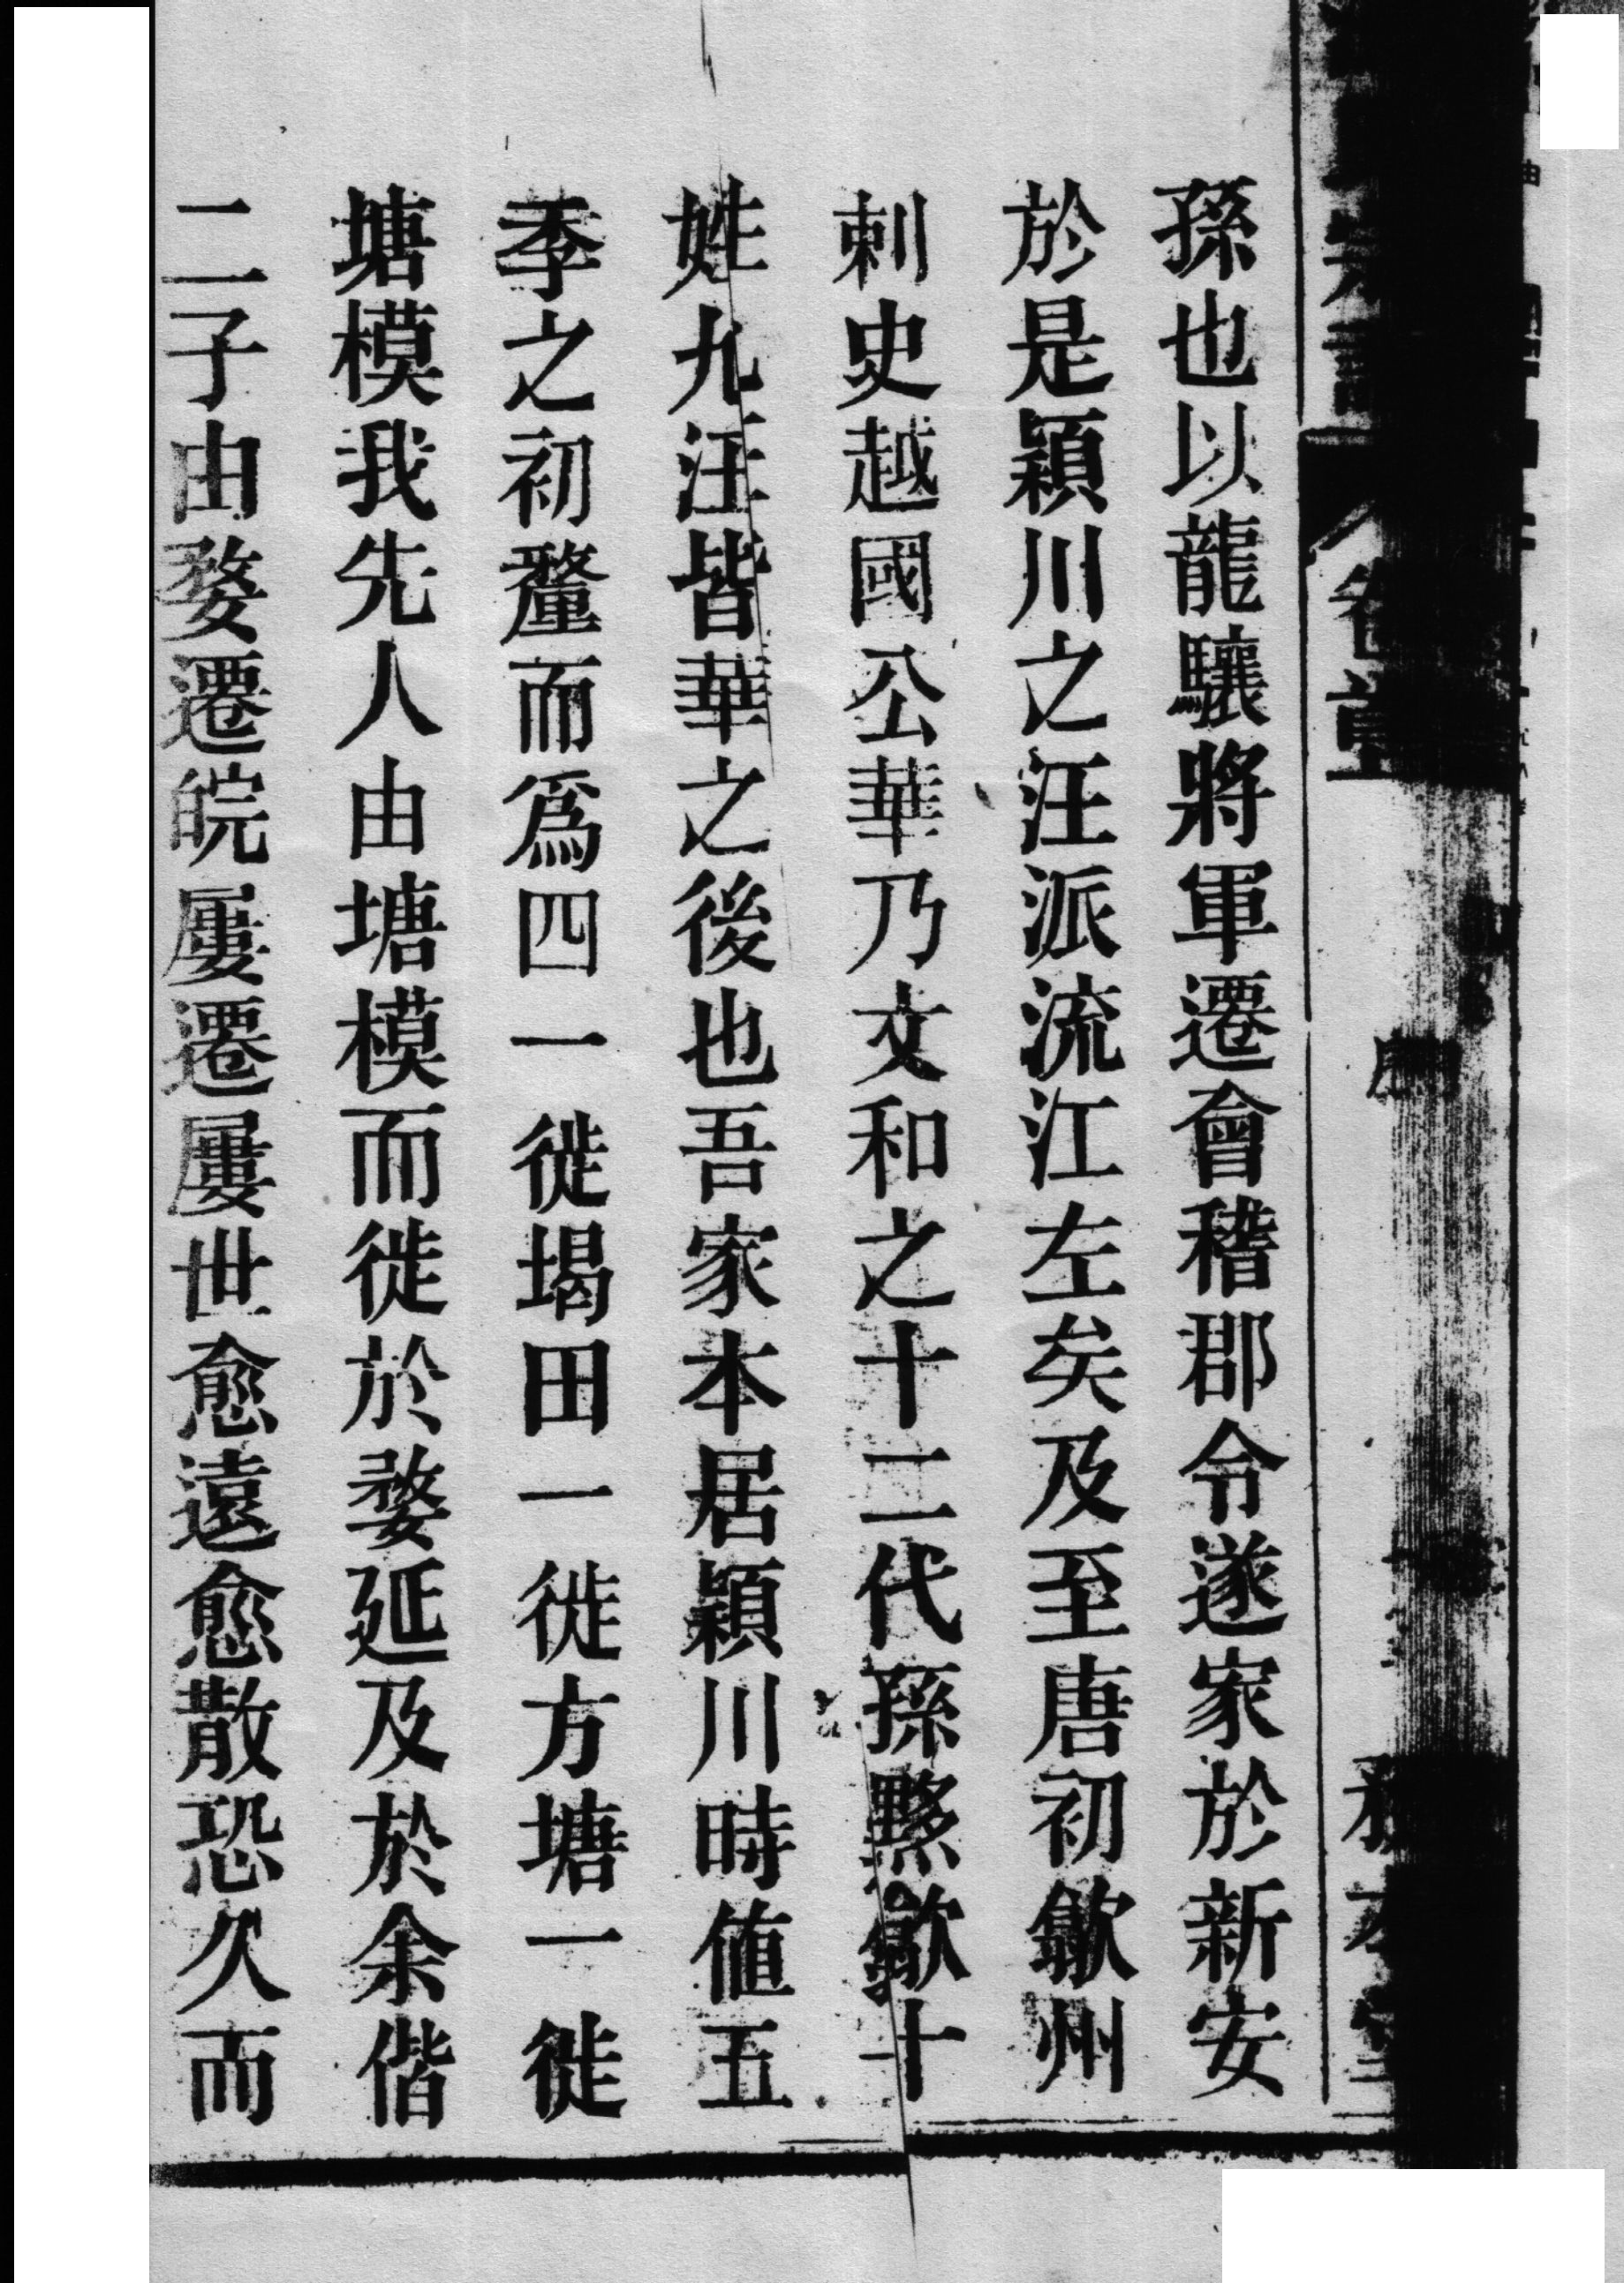 卷首
孫也以龍驤將軍遷會稽郡令遂家於新安
於是穎川之汪派流江左矣及至唐初歙州
刺史越國公華乃文和之十二代孫黟歙十
姓九汪皆華之後也吾家本居穎川時値五
季之初釐而爲四一徙堨田一徙方塘一徙
塘模我先人由塘模而徙於婺延及於余偕
二子由婺遷皖屢遷屢世愈遠愈散恐久而